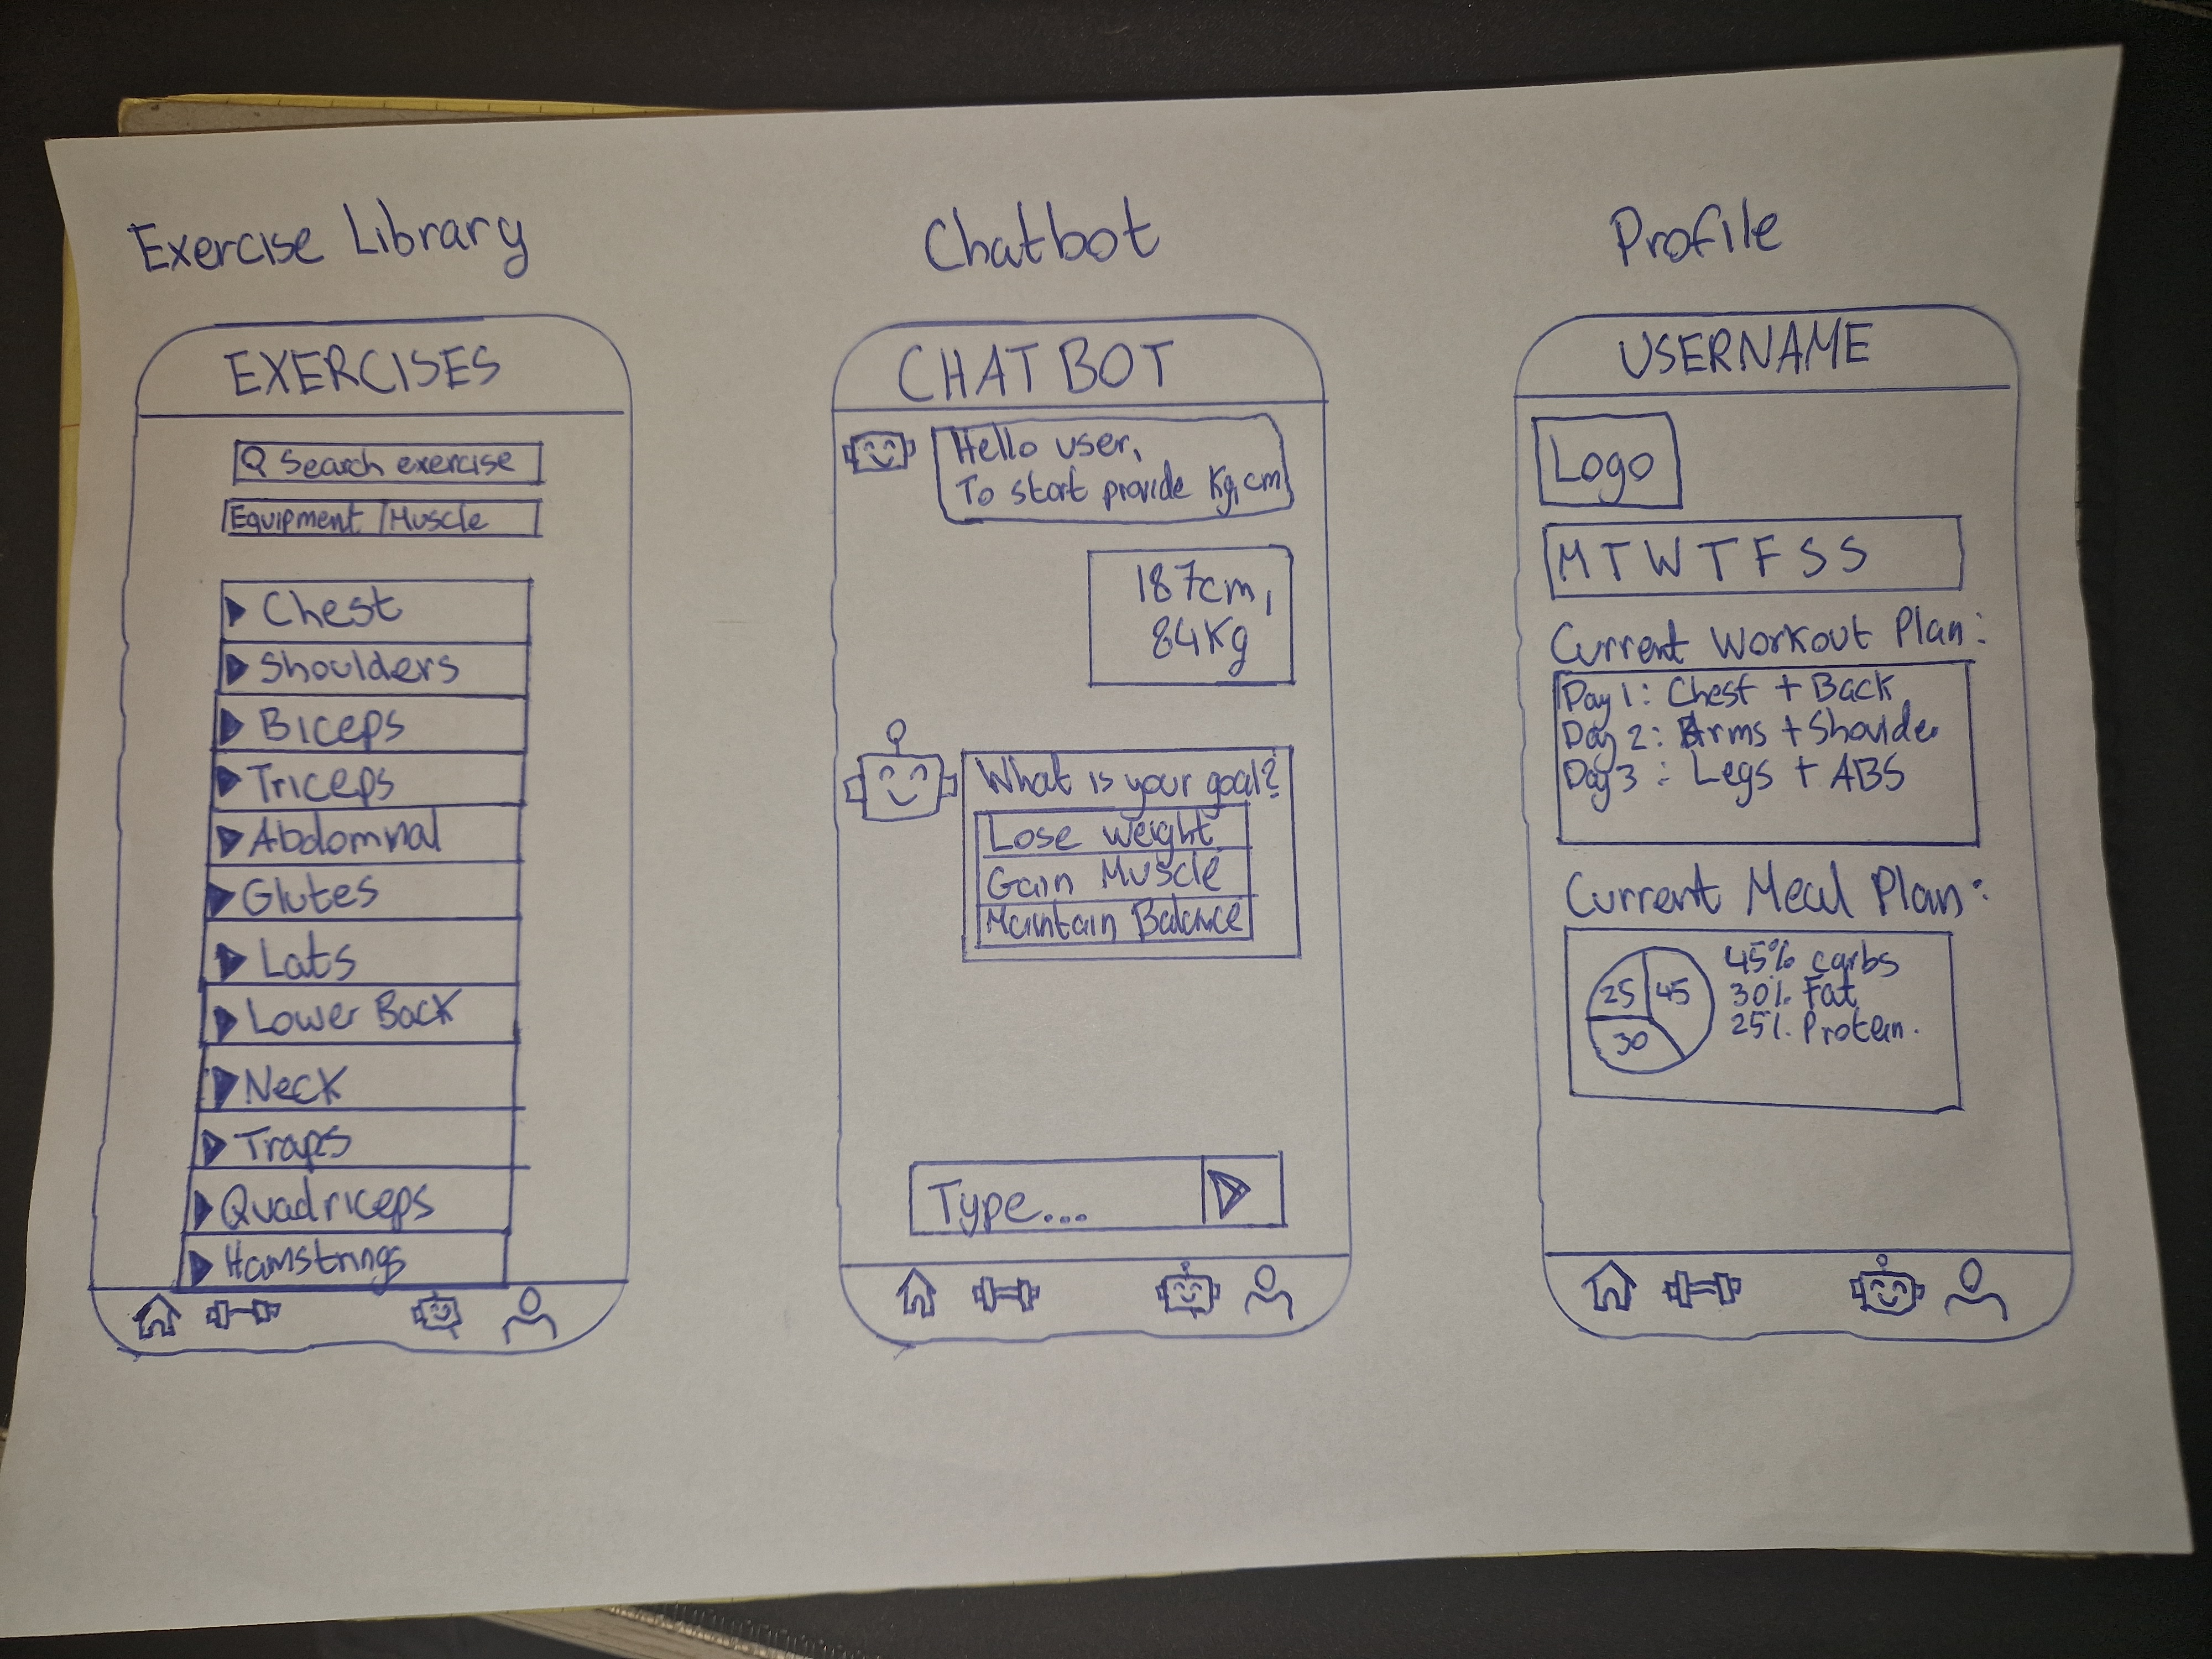 Exercise Library
EXERCISES
Search exercise
Equipment Muscle
Chest
Shoulders
Biceps
Triceps
Abdomnal
Glutes
Lats
Lower Back
Neck
Traps
Quadriceps
Hamstrings
Chatbot
CHATBOT
Hello user,
To start provide Kg, cm
187cm,
84Kg
What is your goal?
Lose weight
Gain Muscle
Maintain Balance
Type...
Profile
USERNAME
Logo
M T W T F S S
Current Workout Plan:
Day 1: Chest + Back
Day 2: Arms + Shoulde
Day 3: Legs + ABS
Current Meal Plan:
25 45
30
45% carbs
30% Fat
25% Protein.